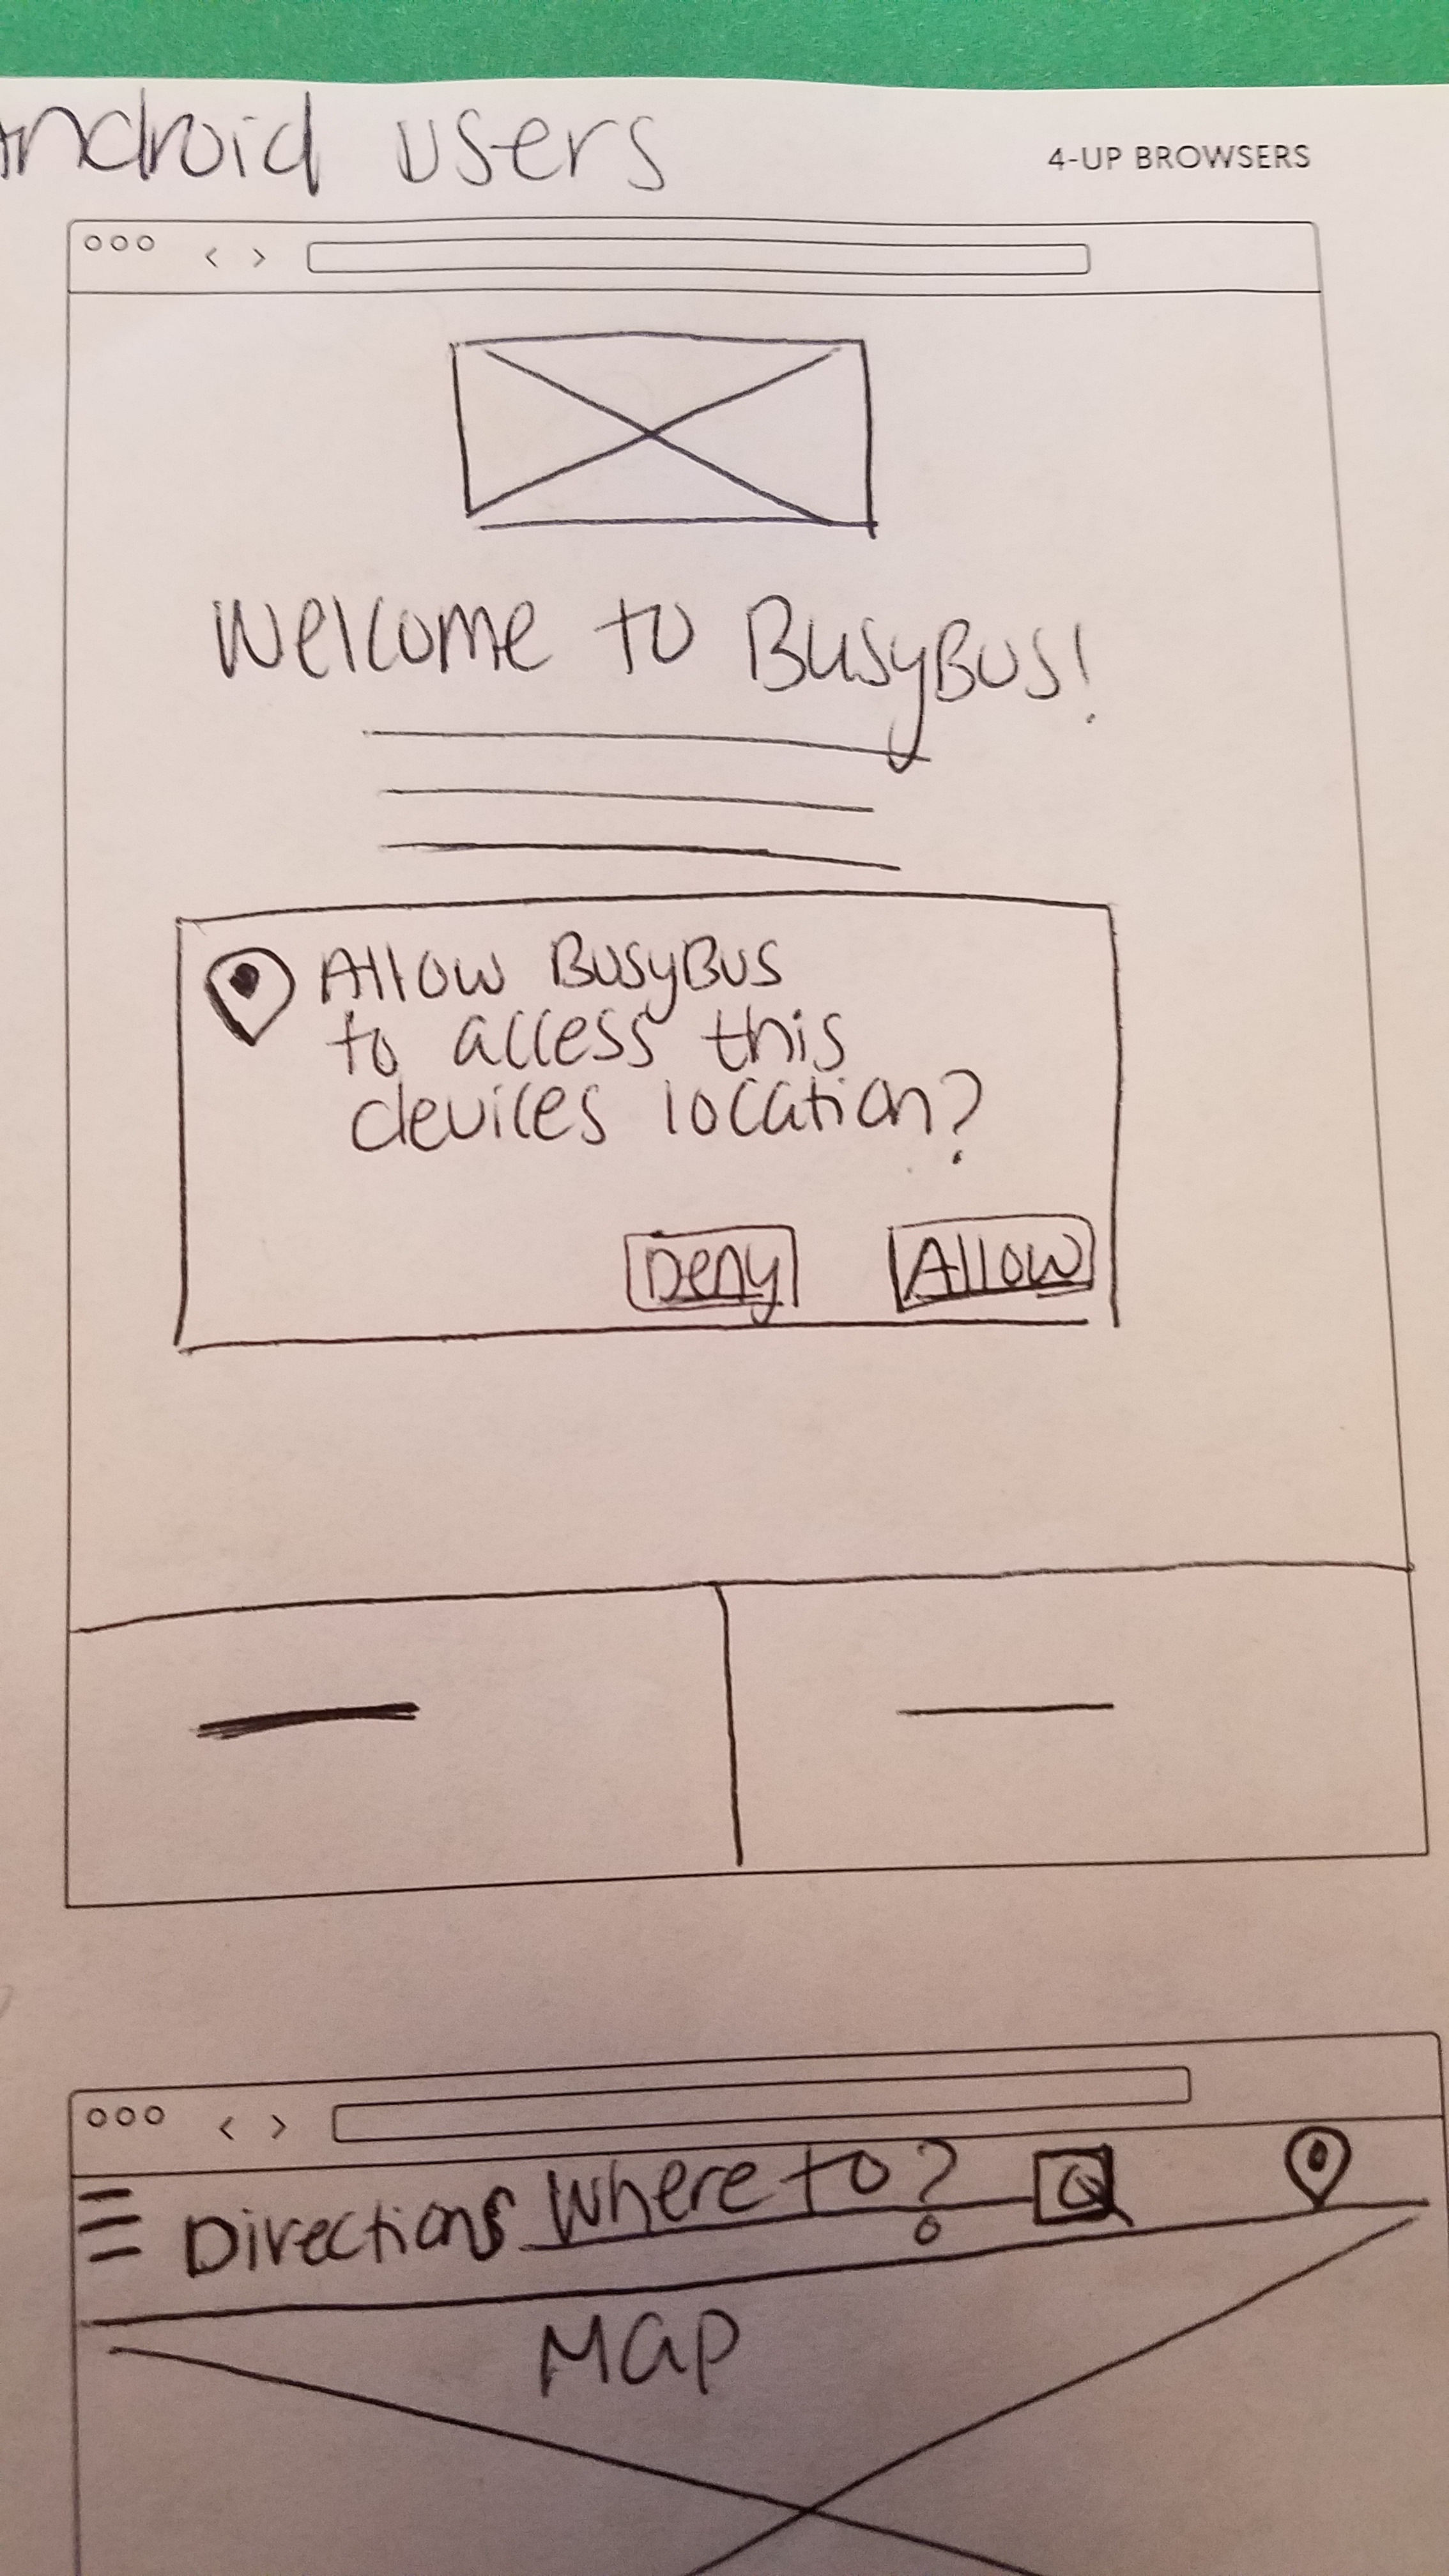 Android users
4-UP BROWSERS
Welcome to BusyBus!
Allow BusyBus
to access this
devices location?
Deny Allow
Directions Where to?
Map